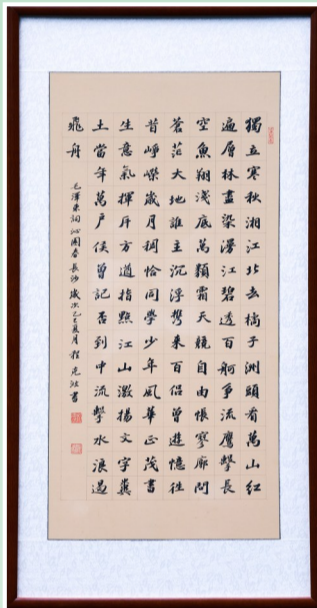 獨立寒秋湘江北去橘子洲頭看萬山紅
遍層林盡染漫江碧透百舸爭流鷹擊長
空魚翔淺底萬類霜天競自由悵寥廓問
蒼茫大地誰主沉浮攜來百侶曾遊憶往
昔崢嶸歲月稠恰同學少年風華正茂書
生意氣揮斥方遒指點江山激揚文字糞
土當年萬戶侯曾記否到中流擊水浪遏
飛舟
毛澤東詞沁園春長沙 歲次乙巳夏月 程克 書